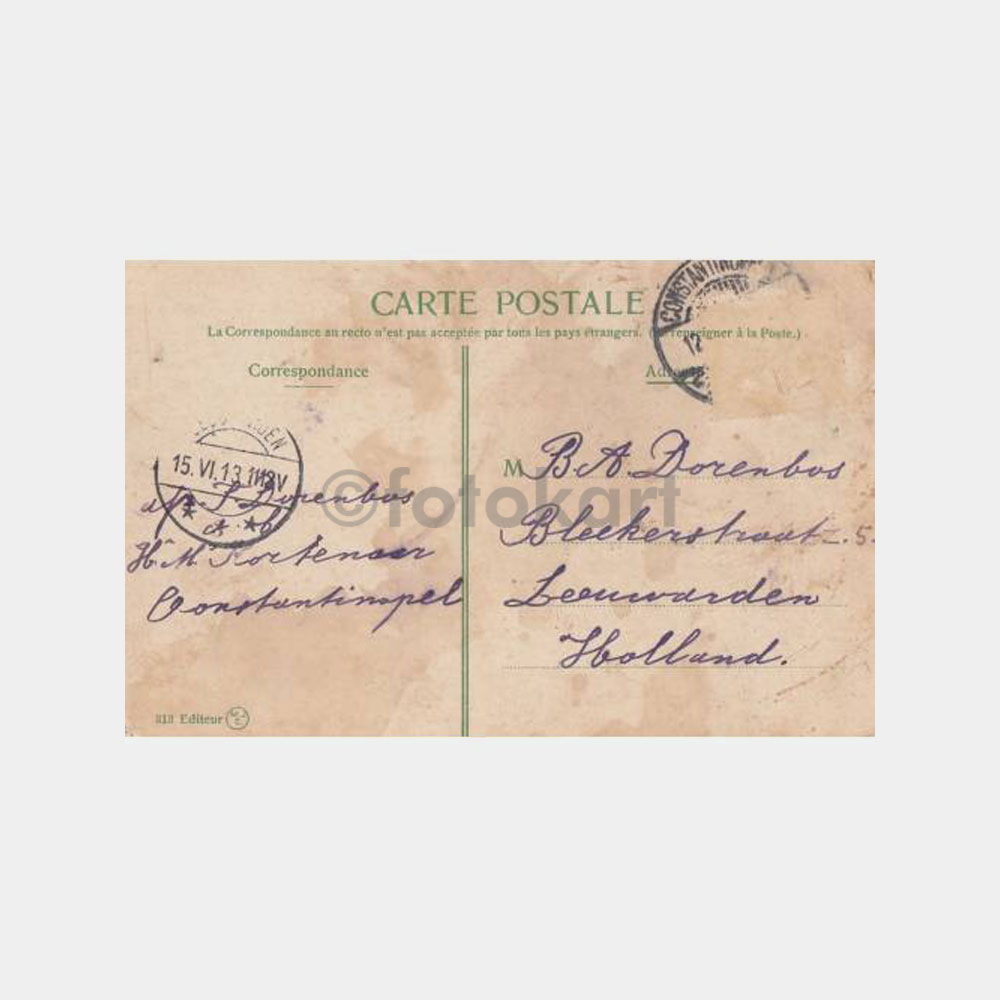 CARTE POSTALE
La Correspondance au recto n'est pas acceptée par tous les pays étrangers. renseigner à la Poste.)
Correspondance
Adresse
CONSTANTINOPLE
15.VI.13
S. Dorenbos
a b
H.M. Kortenaer
Constantinopel
M B A Dorenbos
Bleekerstraat 5.
Leeuwarden
Holland.
313 Editeur
©fotokart